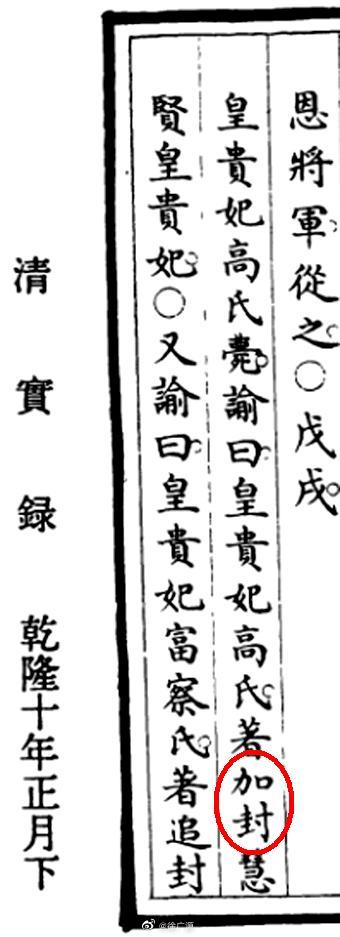 恩將軍從之○戊戌
皇貴妃高氏薨諭曰皇貴妃高氏著加封慧
賢皇貴妃○又諭曰皇貴妃富察氏著追封
清實録 乾隆十年正月下
@徐广源